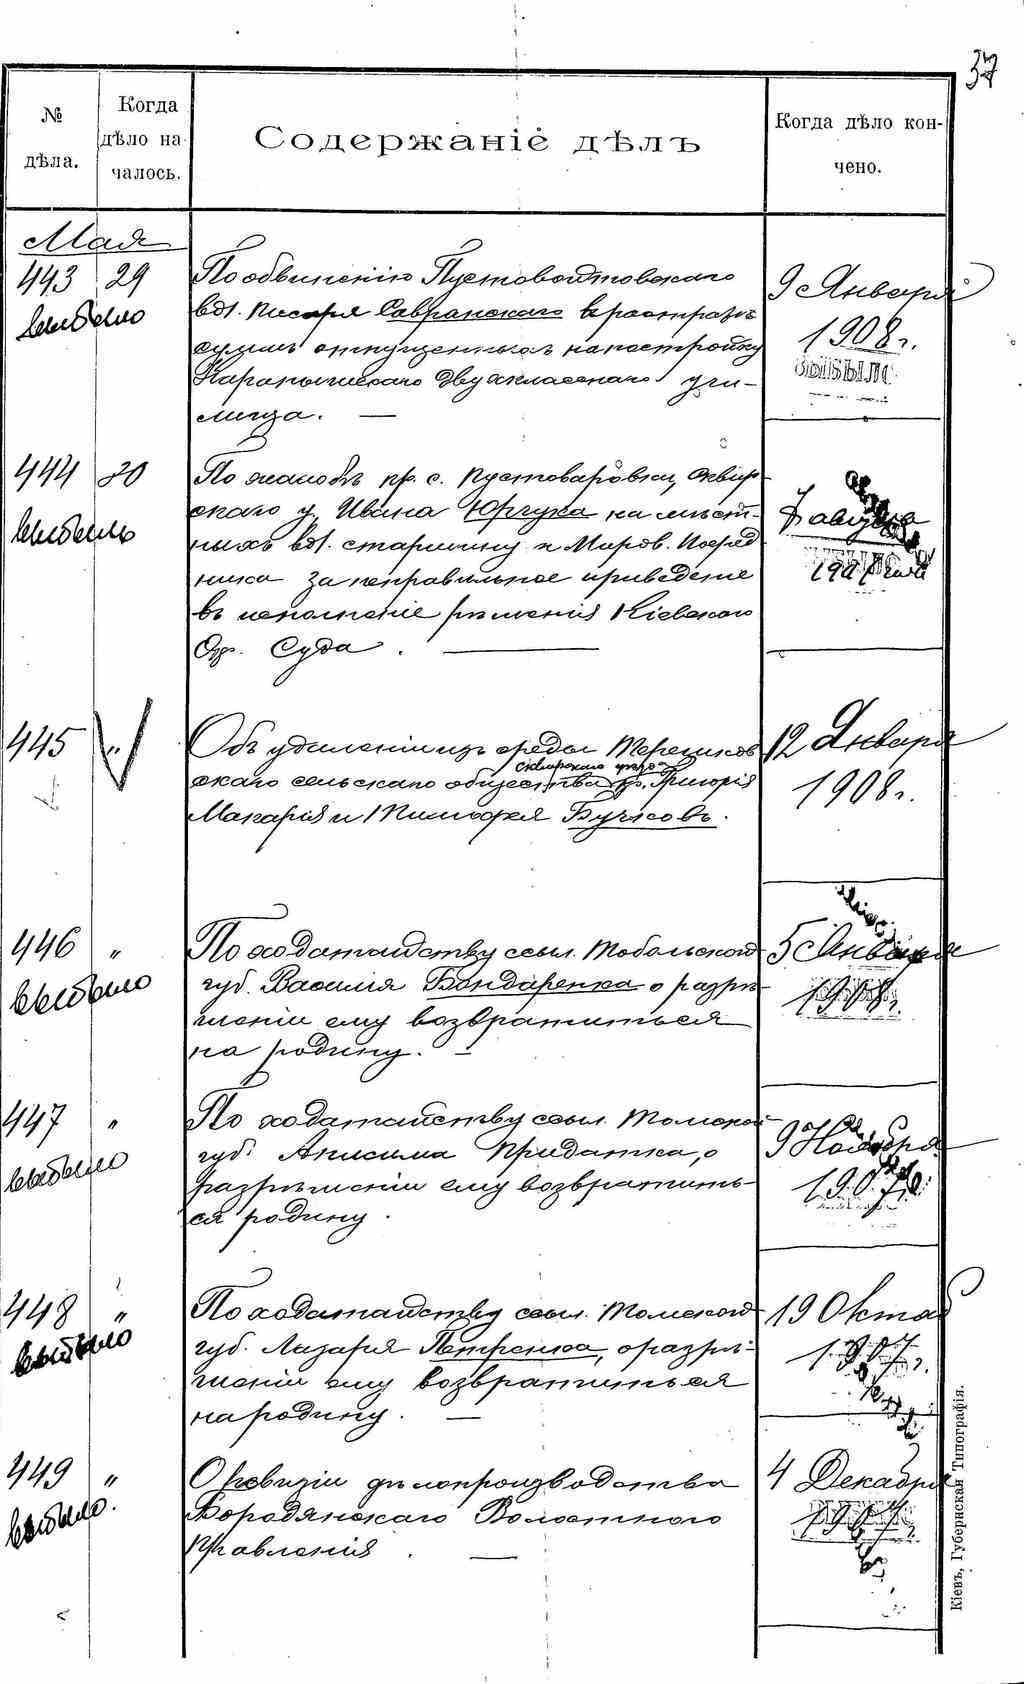 37
№ дѣла.
Когда дѣло на чалось.
Содержаніе дѣлъ
Когда дѣло кон- чено.
Мая
443 29 По обвиненію Пустоволтовскаго 9 Января
выбыло вол. писаря Савранскаго в растратѣ 1908 г.
суммъ отпущенныхъ на постройку
Карапышскаго двухкласснаго учи-
лища. —
444 30 По жалобѣ кр. с. Пустоваровки, Сквир-
скаго у, Ивана на мѣст- 7 августа
выбылъ ныхъ вол. старшину и Миров. Посред
ника за неправильное приведеніе 1907 года
въ исполненіе рѣшенія Кіевскаго
Окр. Суда. —
445 " Объ удаленіи изъ среды Терешков 12 Января
сквирскаго уѣзда
скаго сельскаго общества кр. Григорія 1908 г.
Макарія и Тимофея .
446 " По ходатайству ссыл. Тобольской 5 Января
выбыло губ. Василія Бондаренка о разрѣ- 1908 г.
шеніи ему возвратиться
на родину. —
447 " По ходатайству ссыл. Томской 9 Ноября
выбыло губ. Анисима Придатка, о 1907 г.
разрѣшеніи ему возвратить-
ся родину.
448 " По ходатайству ссыл. Томской 19 Октяб
выбыло губ. Лазаря Петренка, о разрѣ- 1907 г.
шеніи ему возвратиться
на родину. —
449 " О ревизіи дѣлопроизводства 4 Декабря
выбыло. Бородянскаго Волостного 1907 г.
Правленія. —
Кіевъ, Губернская Типографія.